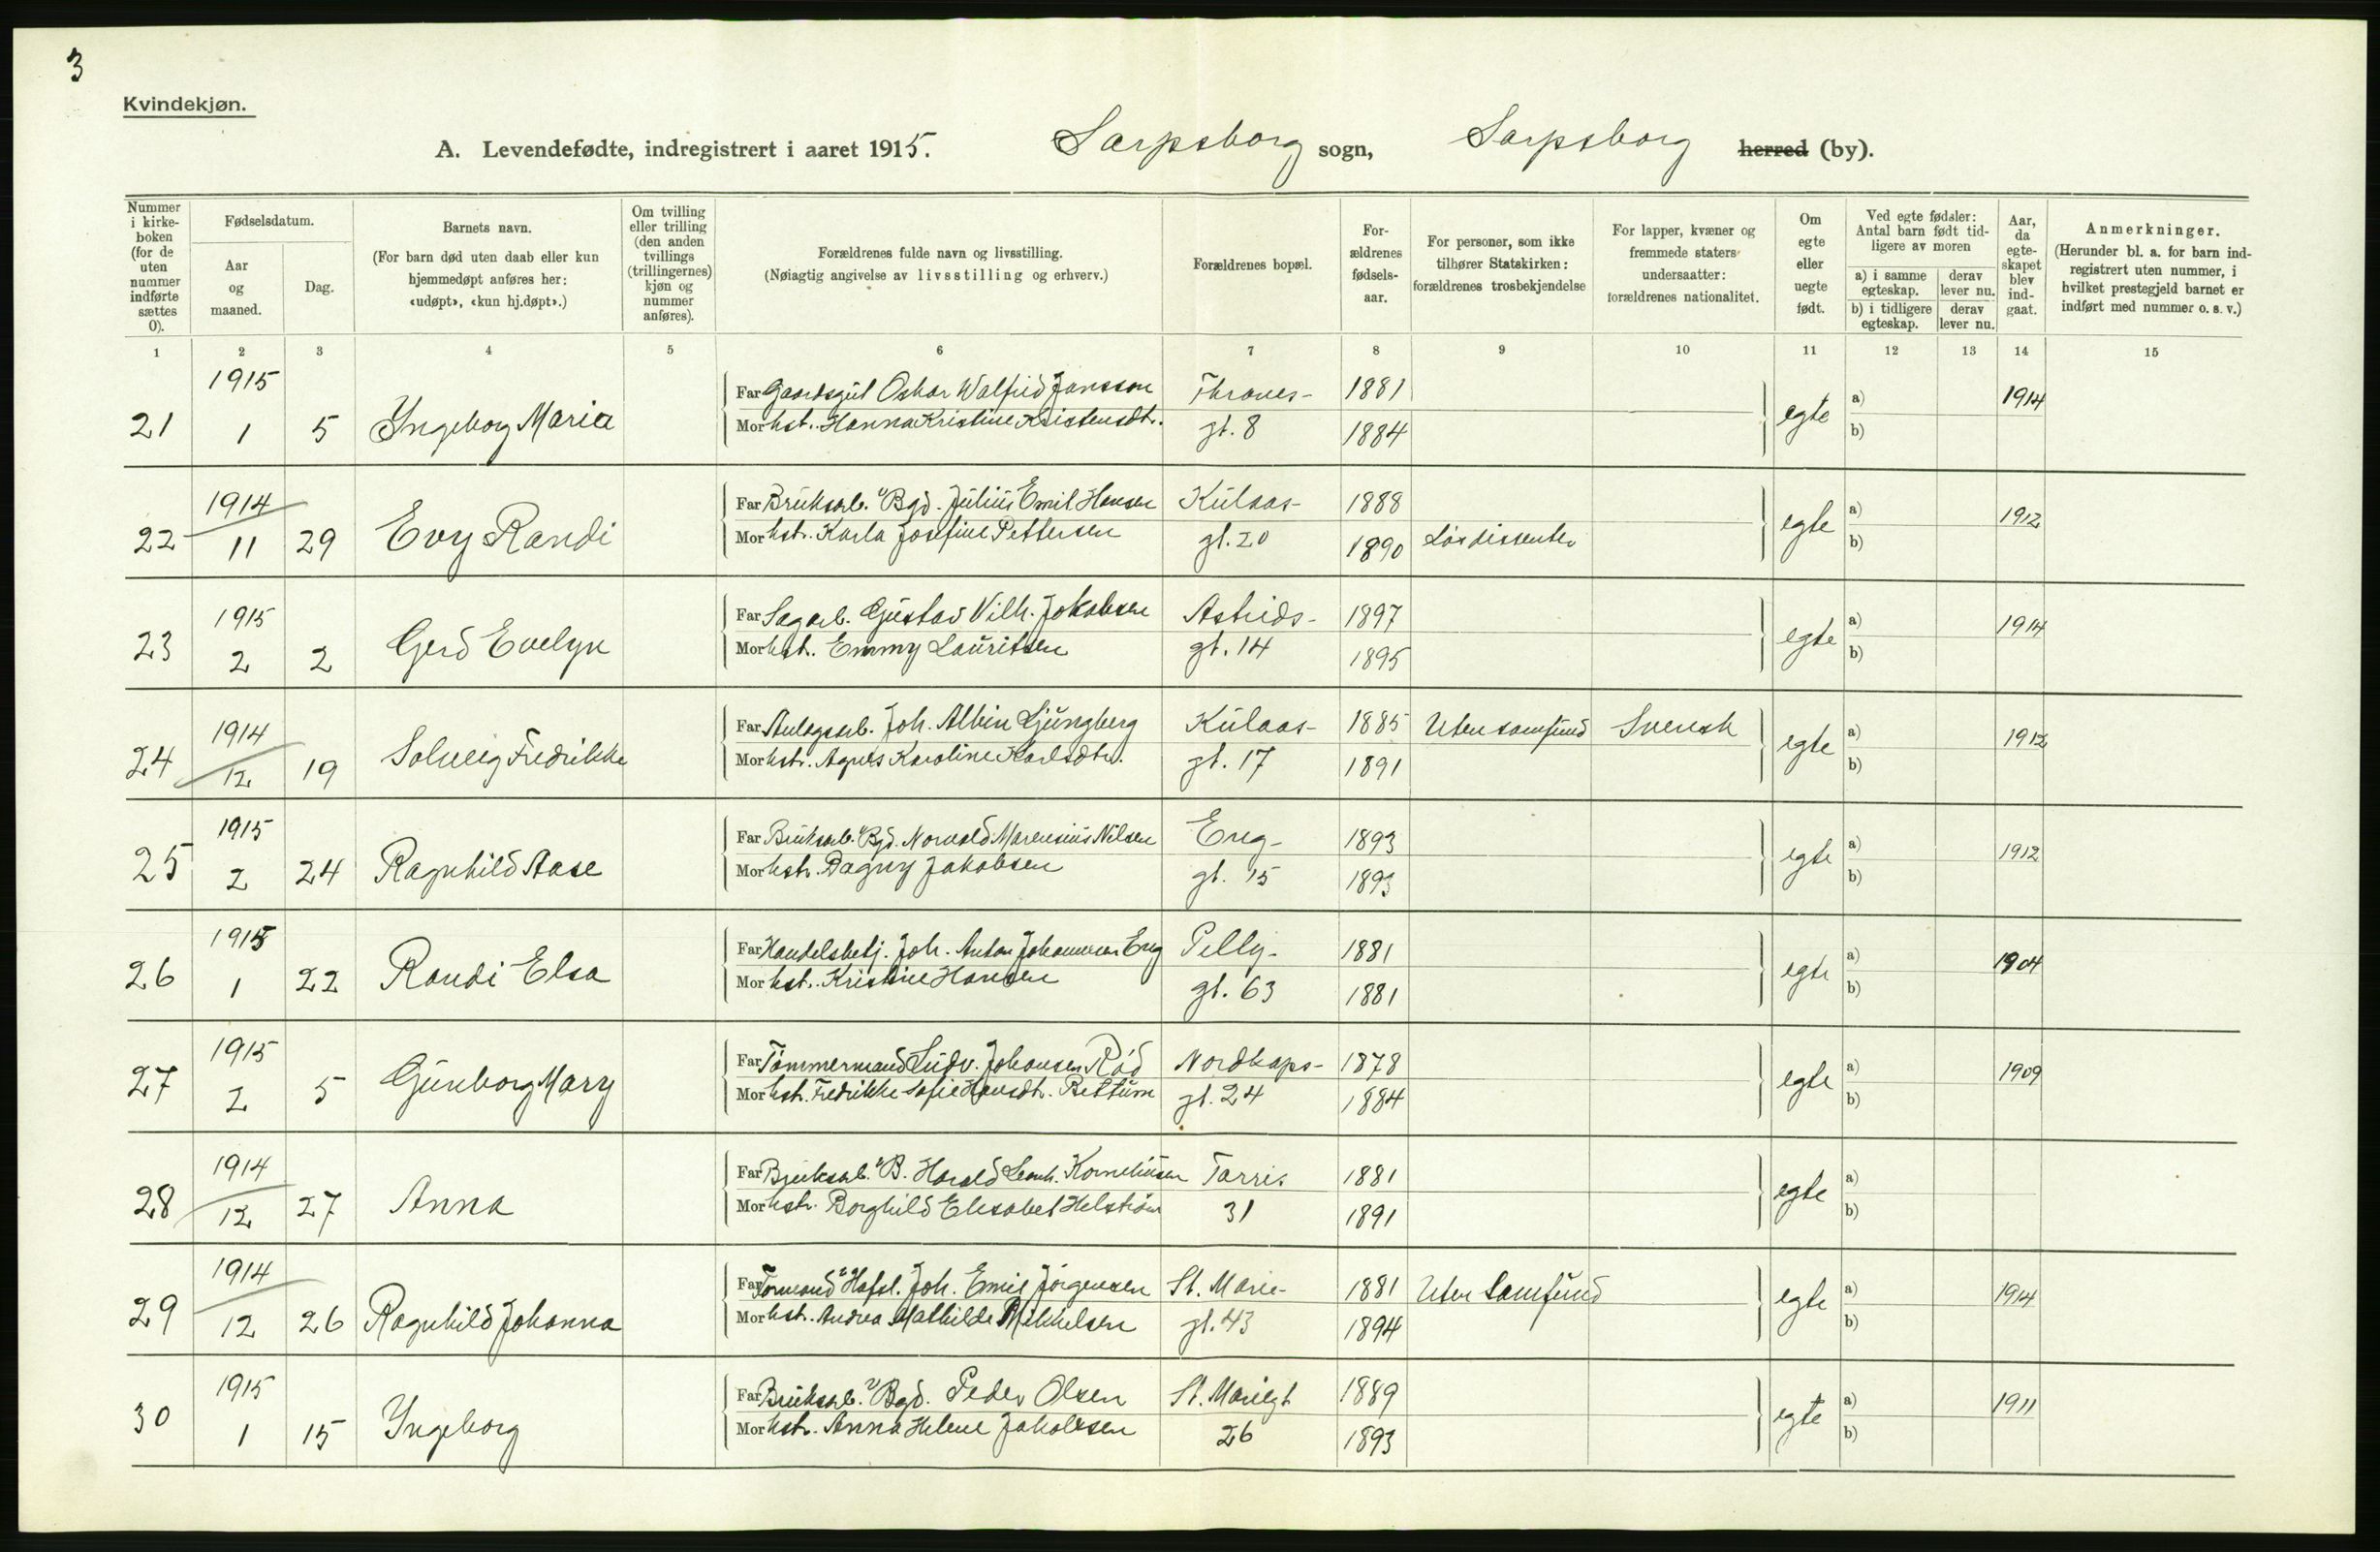 3
Kvindekjøn.
A. Levendefødte, indregistrert i aaret 1915. Sarpsborg sogn, Sarpsborg herred (by).
Nummer i kirkeboken (for de uten nummer indførte sættes 0).
Fødselsdatum.
Aar og maaned.
Dag.
Barnets navn.
(For barn død uten daab eller kun hjemmedøpt anføres her: «udøpt», «kun hj.døpt».)
Om tvilling eller trilling (den anden tvillings (trillingernes) kjøn og nummer anføres).
Forældrenes fulde navn og livsstilling.
(Nøiagtig angivelse av livsstilling og erhverv.)
Forældrenes bopæl.
Forældrenes fødselsaar.
For personer, som ikke tilhører Statskirken: forældrenes trosbekjendelse
For lapper, kvæner og fremmede staters undersaatter: forældrenes nationalitet.
Om egte eller uegte født.
Ved egte fødsler: Antal barn født tidligere av moren
a) i samme egteskap.
derav lever nu.
b) i tidligere egteskap.
derav lever nu.
Aar, da egteskapet blev indgaat.
Anmerkninger.
(Herunder bl. a. for barn indregistrert uten nummer, i hvilket prestegjeld barnet er indført med nummer o. s. v.)
1 2 3 4 5 6 7 8 9 10 11 12 13 14 15
1915 Far Gaardsgut Oskar Walfrid Jansson Thrones- 1881 a) 1914
21 1 5 Yngeborg Maria Mor hst. Hanna Kristine Kristensdtr. gt. 8 1884 egte b)
1914 Far Bruksarb. v/Bgd. Julius Emil Hansen Kulaas- 1888 a) 1912
22 11 29 Evy Randi Mor hstr. Karla Josefine Pettersen gt. 20 1890 Lös dissenter egte b)
1915 Far Sagarb. Gustav Vilh. Jokobsen Astrids- 1897 a) 1914
23 2 2 Gerd Evelyn Mor hst. Emmy Lauritsen gt. 14 1895 egte b)
1914 Far Anlegsarb. Joh. Albin Ljungberg Kulaas- 1885 Uten samfund Svensk a) 1912
24 12 19 Solveig Fredrikke Mor hstr. Agnes Karoline Karlsdtr. gt. 17 1891 egte b)
1915 Far Bruksarb. v/Bgd. Norvald Marensius Nilsen Eng- 1893 a) 1912
25 2 24 Ragnhild Aase Mor hstr. Dagny Jakobsen gt. 15 1893 egte b)
1915 Far Handelsbetj. Joh. Anton Johannesen Eng Pelly- 1881 a) 1904
26 1 22 Randi Elsa Mor hst. Kristine Hansen gt. 63 1881 egte b)
1915 Far Tömmermand Ludv. Johansen Röd Nordkaps- 1878 a) 1909
27 2 5 Gunborg Mary Mor hst. Fredrikke Sofie Hansdtr. Bettum gt. 24 1884 egte b)
1914 Far Bruksarb. v/B. Harald Leonh. Korneliusen Torris 1881 a)
28 12 27 Anna Mor hstr. Borghild Elisabet Helström 31 1891 egte b)
1914 Far Formand v/Hafsl. Joh. Emil Jörgensen St. Marie- 1881 Uten samfund a) 1914
29 12 26 Ragnhild Johanna Mor hst. Andrea Mathilde Mikkelsen gt. 43 1894 egte b)
1915 Far Bruksarb. v/Bgd. Peder Olsen St. Mariegt 1889 a) 1911
30 1 15 Yngeborg Mor hstr. Anna Helene Jakobsen 26 1893 egte b)